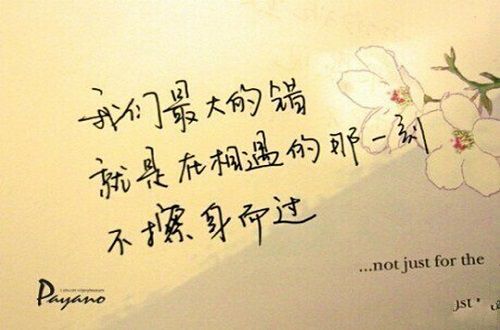 我们最大的错
就是在相遇的那一刻
不擦身而过
...not just for the
Payano